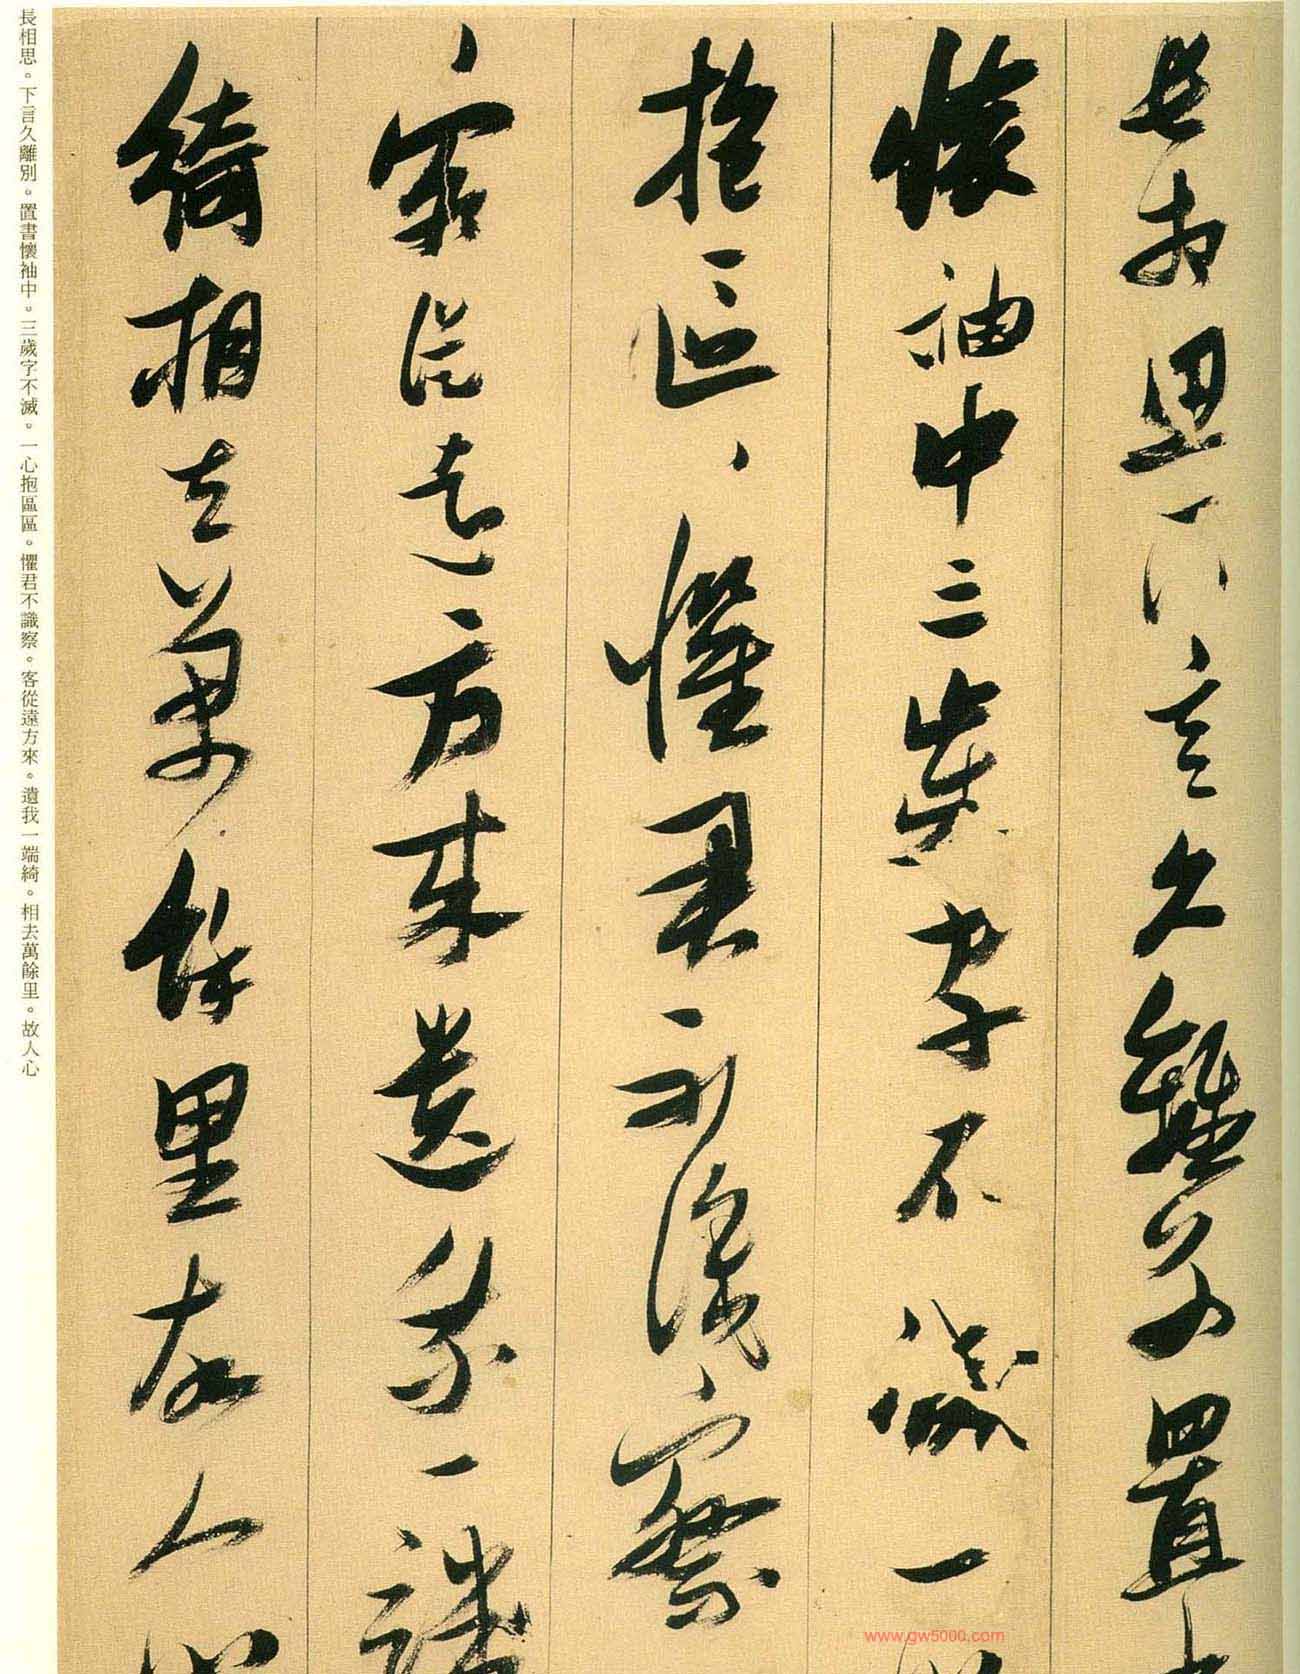 長相思下言久離別置書
懷袖中三歲字不滅一心
抱區〻懼君不識察
客從遠方來遺我一端
綺相去萬餘里故人心
長相思。下言久離別。置書懷袖中。三歲字不滅。一心抱區區。懼君不識察。客從遠方來。遺我一端綺。相去萬餘里。故人心
www.gw5000.com